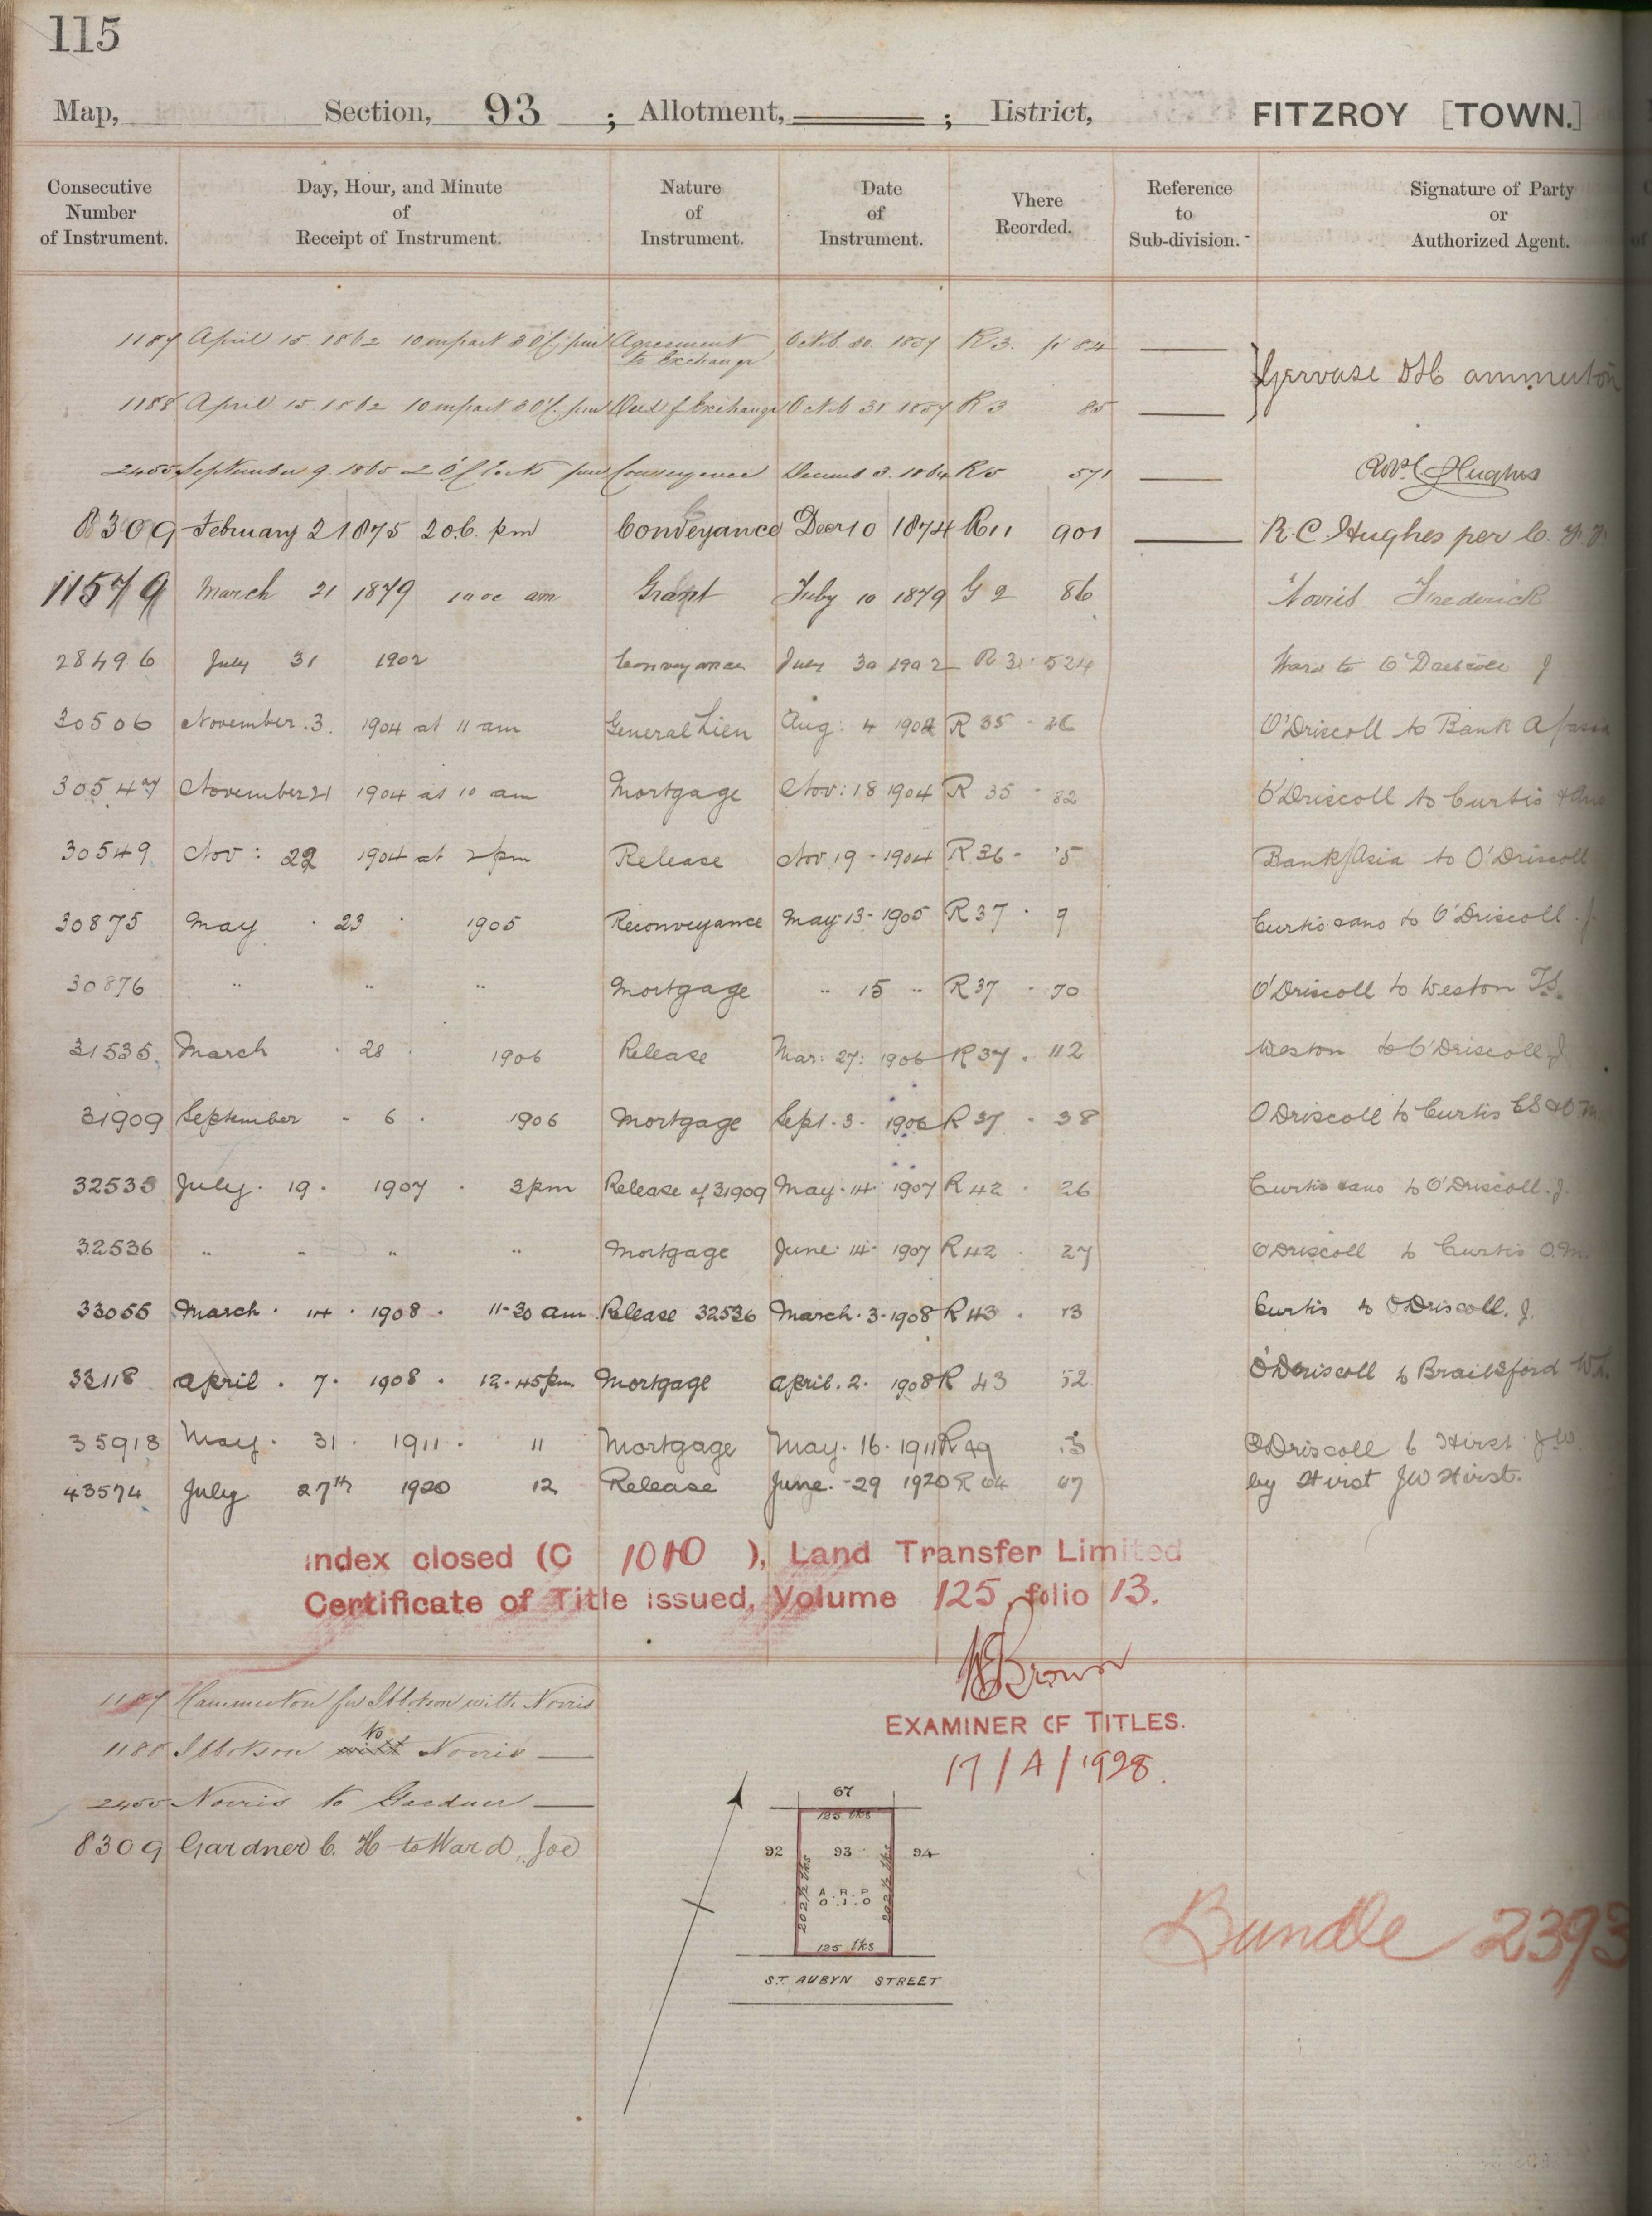 115
Map, Section, 93 ; Allotment, ; District, FITZROY [TOWN.]
Consecutive Number of Instrument. Day, Hour, and Minute of Receipt of Instrument. Nature of Instrument. Date of Instrument. Where Recorded. Reference to Sub-division. Signature of Party or Authorized Agent.
1187 April 15. 1862 10 m past 3 O'C. pm Agreement to Exchange Octob. 30. 1857 R3. p 84
Gervase D Hammerton
1188 April 15. 1862 10 m past 3 O'C. pm Deed of Exchange Octob 31. 1857 R3 85
2455 September 9. 1865 2 O'Clock pm Conveyance Decemb 3. 1864 R5 571 Robt C Hughes
8309 February 2 1875 2 o.c. pm Conveyance Decr 10 1874 R11 901 R. C. Hughes per
11579 March 21 1879 am Grant July 10 1879 G 2 86 Norris Frederick
28496 July 31 1902 Conveyance July 30 1902 R 524 Ward to O'Driscoll J
30506 November. 3. 1904 at 11 am General Lien Aug: 4 1902 R 35 - 26 O'Driscoll to Bank A/asia
30547 November 21 1904 at 10 am Mortgage Nov: 18 1904 R 35 - 82 O'Driscoll to Curtis & Ano
30549 Nov: 22 1904 at 2 pm Release Nov 19 - 1904 R. 36 - 5 Bank A/asia to O'Driscoll
30875 May 23 1905 Reconveyance May 13 - 1905 R 37 . 9 Curtis & ano to O'Driscoll. J.
30876 .. .. .. Mortgage .. 15 .. R 37 - 70 O'Driscoll to Weston T.S.
31535. March . 28 . 1906 Release Mar: 27: 1906 R 37 . 112 Weston to O'Driscoll J
31909 September - 6 . 1906 Mortgage Sept. 3. 1906 R 37 . 38 O Driscoll to Curtis C S & O M
32535 July. 19. 1907 . 3 pm Release of 31909 May. 14. 1907 R 42 . 26 Curtis & ano to O'Driscoll. J.
32536 .. .. .. .. Mortgage June. 14. 1907 R 42 . 27 O Driscoll to Curtis O. M.
33055 March. 14. 1908. 11-30 am Release 32536 March. 3. 1908 R 43 . 13 Curtis to O Driscoll. J.
33118 April. 7. 1908. 12.45 pm Mortgage April. 2. 1908 R 43 52 O'Driscoll to Brailsford
35918 May. 31. 1911. 11 Mortgage May. 16. 1911 R 49 O Driscoll to Hirst J W
43574 July 27th 1920 12 Release June. - 29 1920 R 64 67 by Hirst J W Hirst.
Index closed (C 1010 ), Land Transfer Limited
Certificate of Title issued, Volume 125, folio 13.
Brown
EXAMINER OF TITLES.
17/4/1928.
1187 Hammerton for Ibbotson with Norris
1188 Ibbotson to Norris
2455 Norris to Gardner
8309 Gardner C. H to Ward, Joe
67
125 lks
92 93 94
202½ lks 202½ lks
A. R. P
0. 1. 0
125 lks
ST. AUBYN STREET
Bundle 2393